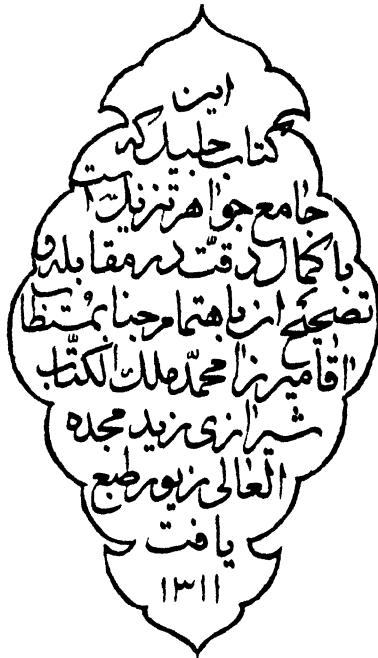 این
کتاب جلیل که
جامع جواهر تنزیل است
با کمال دقت در مقابله و
تصحیح از باهتمام جناب مستطاب
آقا میرزا محمد ملك الكتّاب
شیرازی زید مجده
العالی زیور طبع
یافت
۱۳۱۱